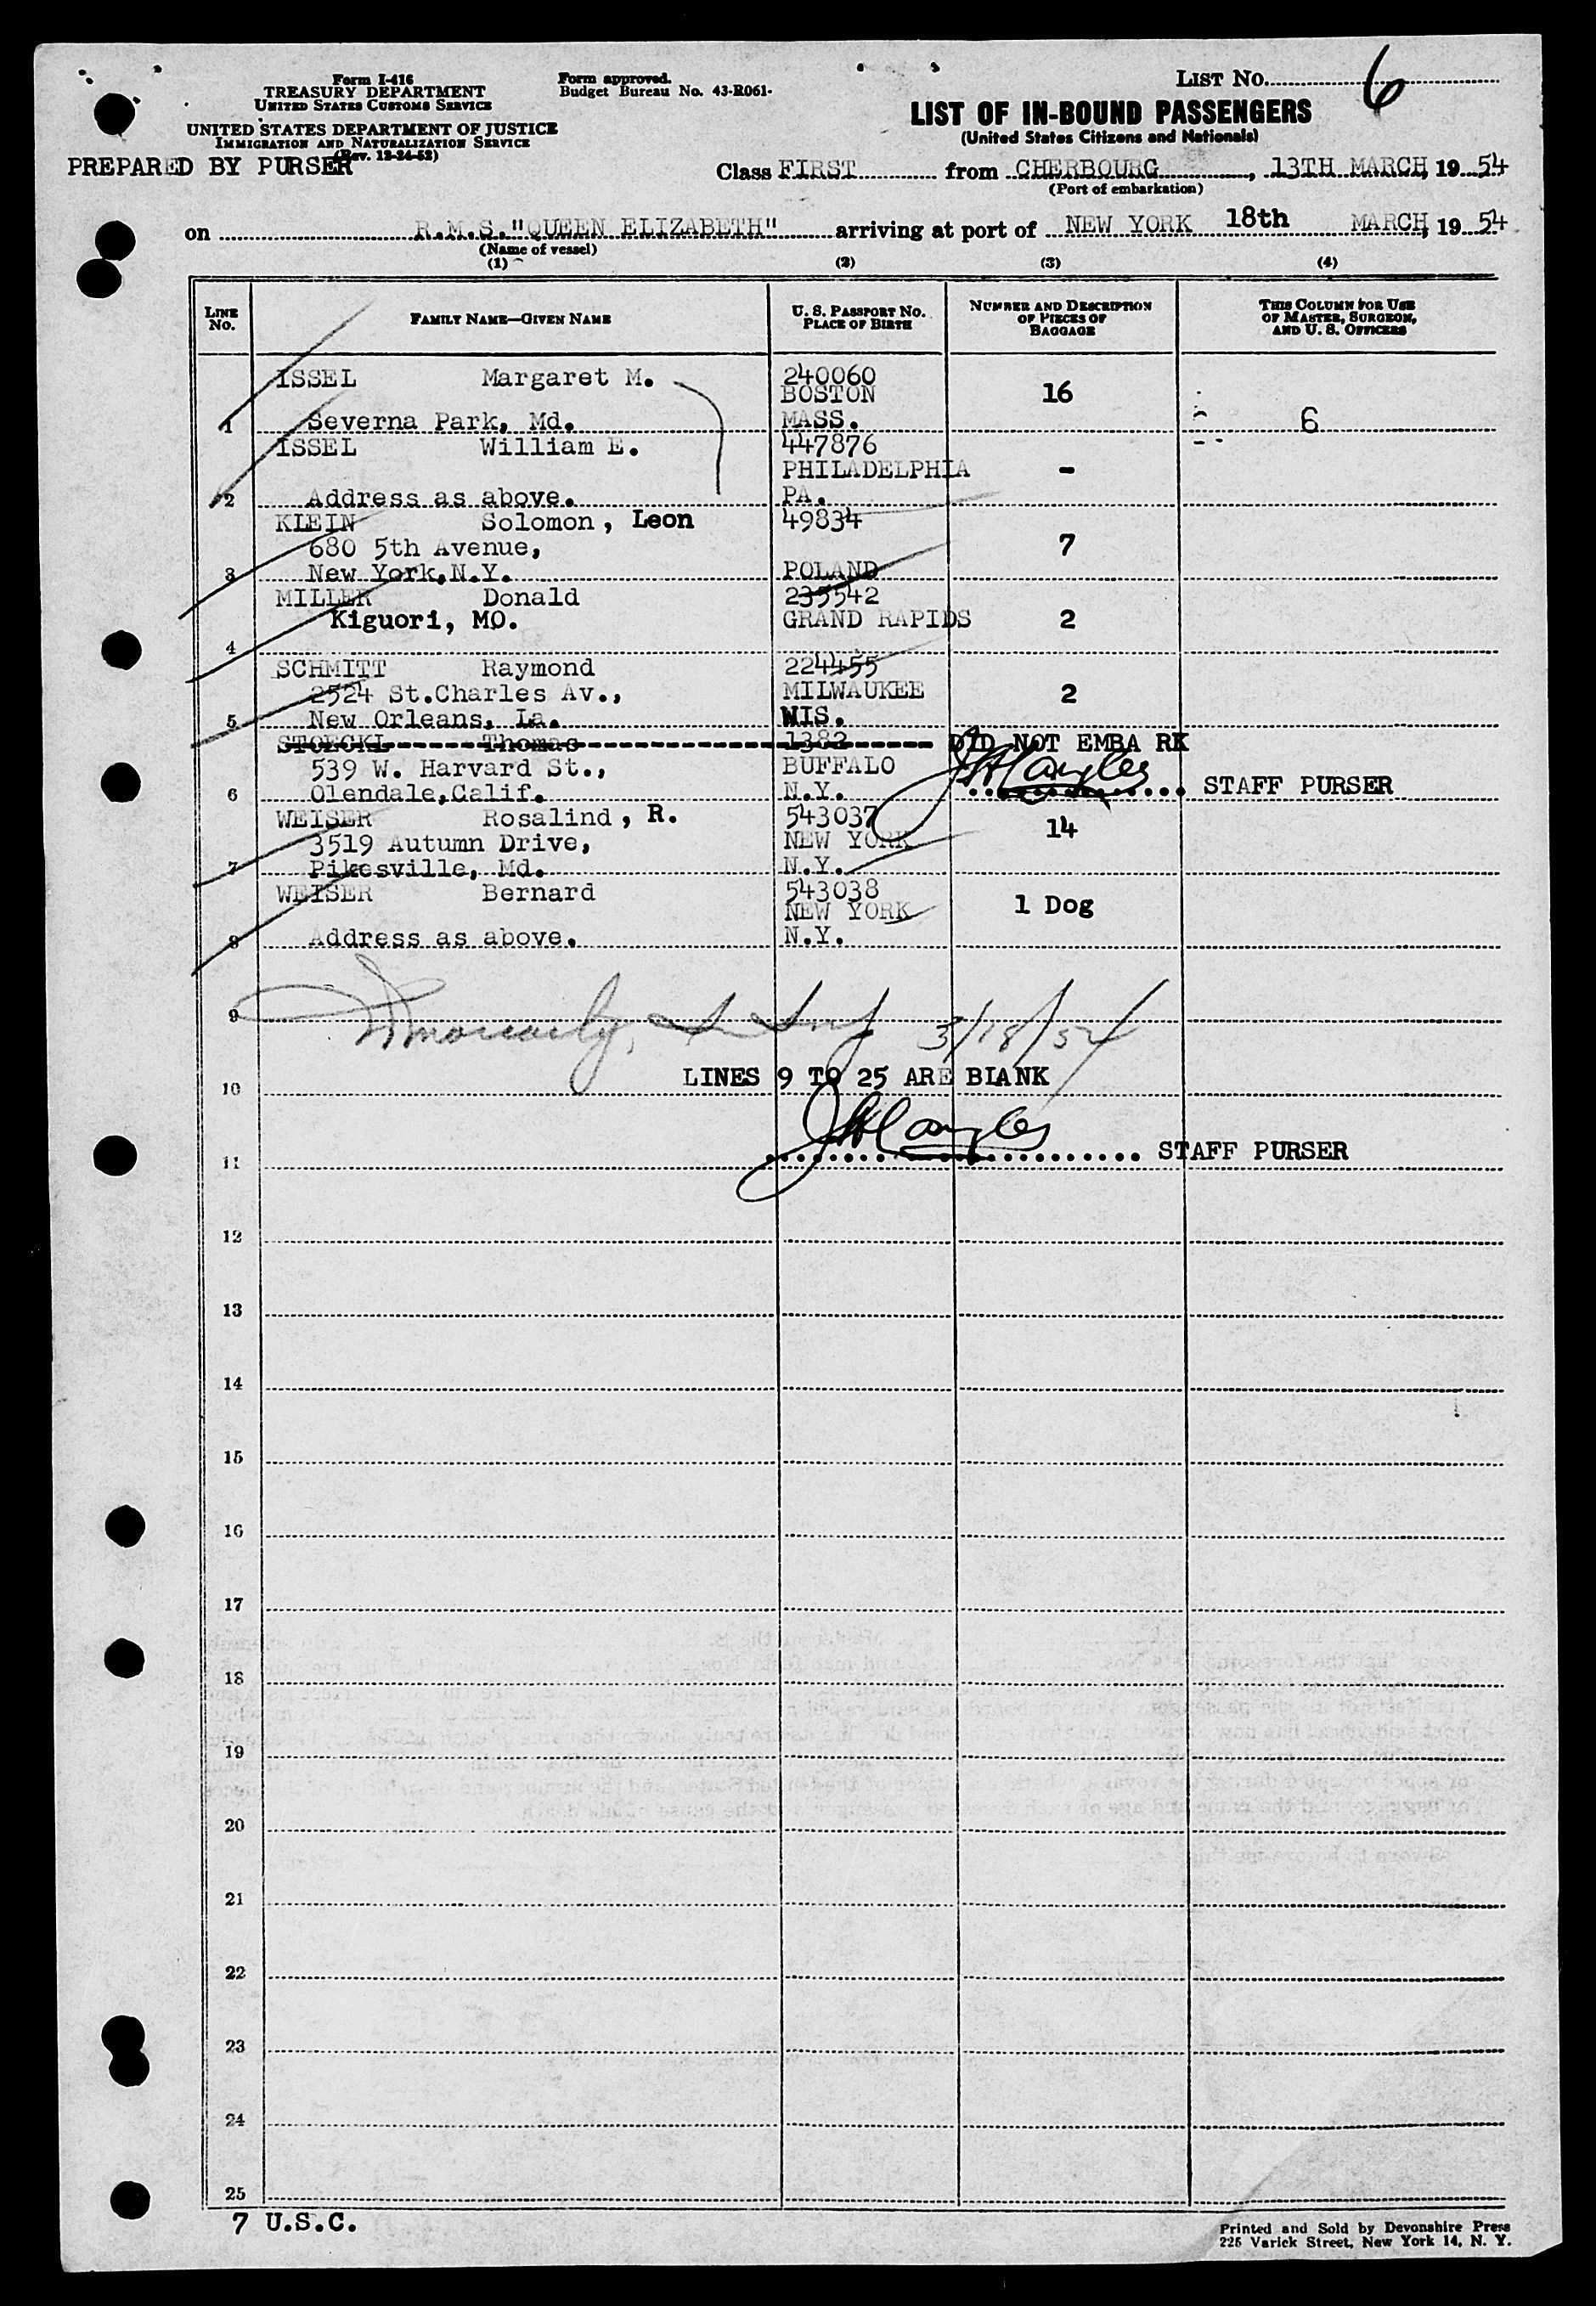 Form I-416
TREASURY DEPARTMENT
UNITED STATES CUSTOMS SERVICE
UNITED STATES DEPARTMENT OF JUSTICE
IMMIGRATION AND NATURALIZATION SERVICE
(Rev. 12-24-52)
PREPARED BY PURSER
Form approved.
Budget Bureau No. 43-R061.
LIST NO. 6
LIST OF IN-BOUND PASSENGERS
(United States Citizens and Nationals)
Class FIRST from CHERBOURG, 13TH MARCH, 19 54
(Port of embarkation)
on R.M.S."QUEEN ELIZABETH" arriving at port of NEW YORK 18th MARCH, 19 54
(Name of vessel)
(1) (2) (3) (4)
LINE No. FAMILY NAME—GIVEN NAME U. S. PASSPORT NO. PLACE OF BIRTH NUMBER AND DESCRIPTION OF PIECES OF BAGGAGE THIS COLUMN FOR USE OF MASTER, SURGEON, AND U. S. OFFICERS
ISSEL Margaret M. 240060
BOSTON 16
1 Severna Park, Md. MASS. 6
ISSEL William E. 447876
PHILADELPHIA -
2 Address as above. PA.
KLEIN Solomon, Leon 49834
680 5th Avenue, 7
3 New York,N.Y. POLAND
MILLER Donald 235542
Kiguori, MO. GRAND RAPIDS 2
4
SCHMITT Raymond 224455
2524 St.Charles Av., MILWAUKEE 2
5 New Orleans, La. WIS.
STOECKL Thomas 1382 DID NOT EMBA RK
539 W. Harvard St., BUFFALO
6 Olendale,Calif. N.Y. STAFF PURSER
WEISER Rosalind, R. 543037
3519 Autumn Drive, NEW YORK 14
7 Pikesville, Md. N.Y.
WEISER Bernard 543038
NEW YORK 1 Dog
8 Address as above. N.Y.
9 3/18/54
LINES 9 TO 25 ARE BLANK
10
11 STAFF PURSER
12
13
14
15
16
17
18
19
20
21
22
23
24
25
7 U.S.C.
Printed and Sold by Devonshire Press
225 Varick Street, New York 14, N. Y.